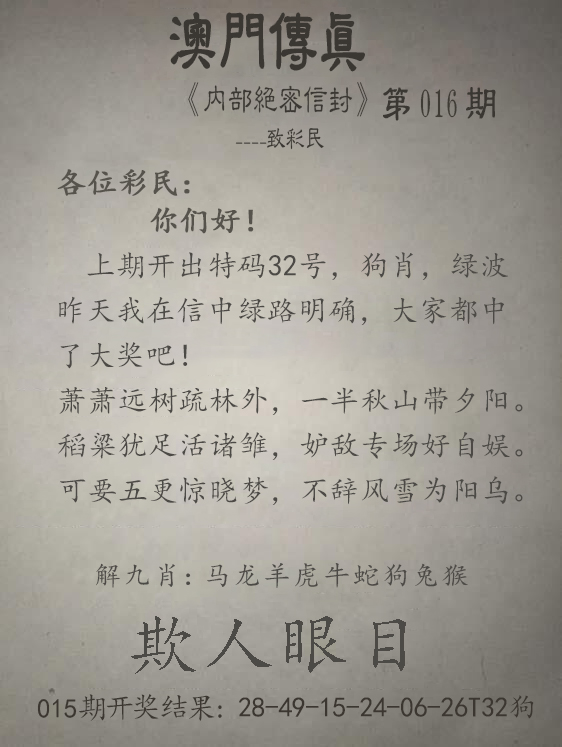 澳門傳眞
《内部絕密信封》第016期
----致彩民
各位彩民：
你们好！
上期开出特码32号，狗肖，绿波
昨天我在信中绿路明确，大家都中
了大奖吧！
萧萧远树疏林外，一半秋山带夕阳。
稻梁犹足活诸雏，妒敌专场好自娱。
可要五更惊晓梦，不辞风雪为阳乌。
解九肖：马龙羊虎牛蛇狗兔猴
欺人眼目
015期开奖结果：28-49-15-24-06-26T32狗